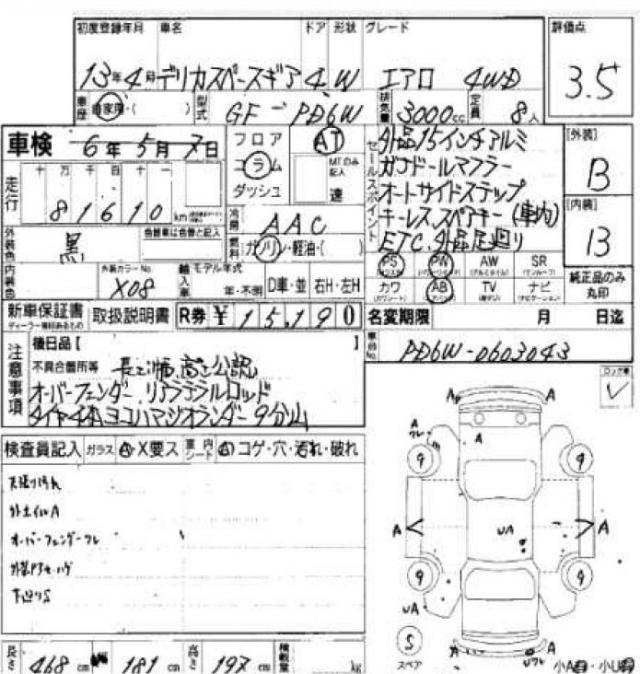 初度登録年月 車名 ドア 形状 グレード 評価点
13年4月 デリカスペースギア 4 W エアロ 4WD 3.5
車歴 自家用・( ) 型式 GF-PD6W 排気量 3000cc 定員 8人
車検 6年5月7日 フロア AT セールスポイント 外品15インチアルミ [外装]
コラム MTのみ記入 ガナドールマフラー B
走行 十 万 千 百 十 一 ダッシュ 速 オートサイドステップ
81610km 冷房 AAC キーレス、スペアキー(車内) [内装]
外装色 黒 色替車は色替と記入 燃料 ガソリン・軽油・( ) ETC、外品足廻り B
内装色 外装カラーNo. X08 輸入車 モデル年式 年・不明 D車・並 右H・左H
PS PW AW SR
カワ AB TV ナビ 純正品のみ丸印
新車保証書 取扱説明書 R券 ¥ 15,190 名変期限 月 日迄
注意事項 後日品[ ]
不具合箇所等 車台No. PD6W-0603043
オーバーフェンダー、リアラテラルロッド
タイヤ4本ヨコハマジオランダー9分山
ロック有
検査員記入 ガラス A・X要ス 車内シート A コゲ・穴・汚れ・破れ
天張り汚れ
外ホイルA
下廻りS
A A
A
A
9 9
A UA A
9 9
UA
S
スペア
A A
長さ 468cm 幅 181cm 高さ 197cm 積載量 kg